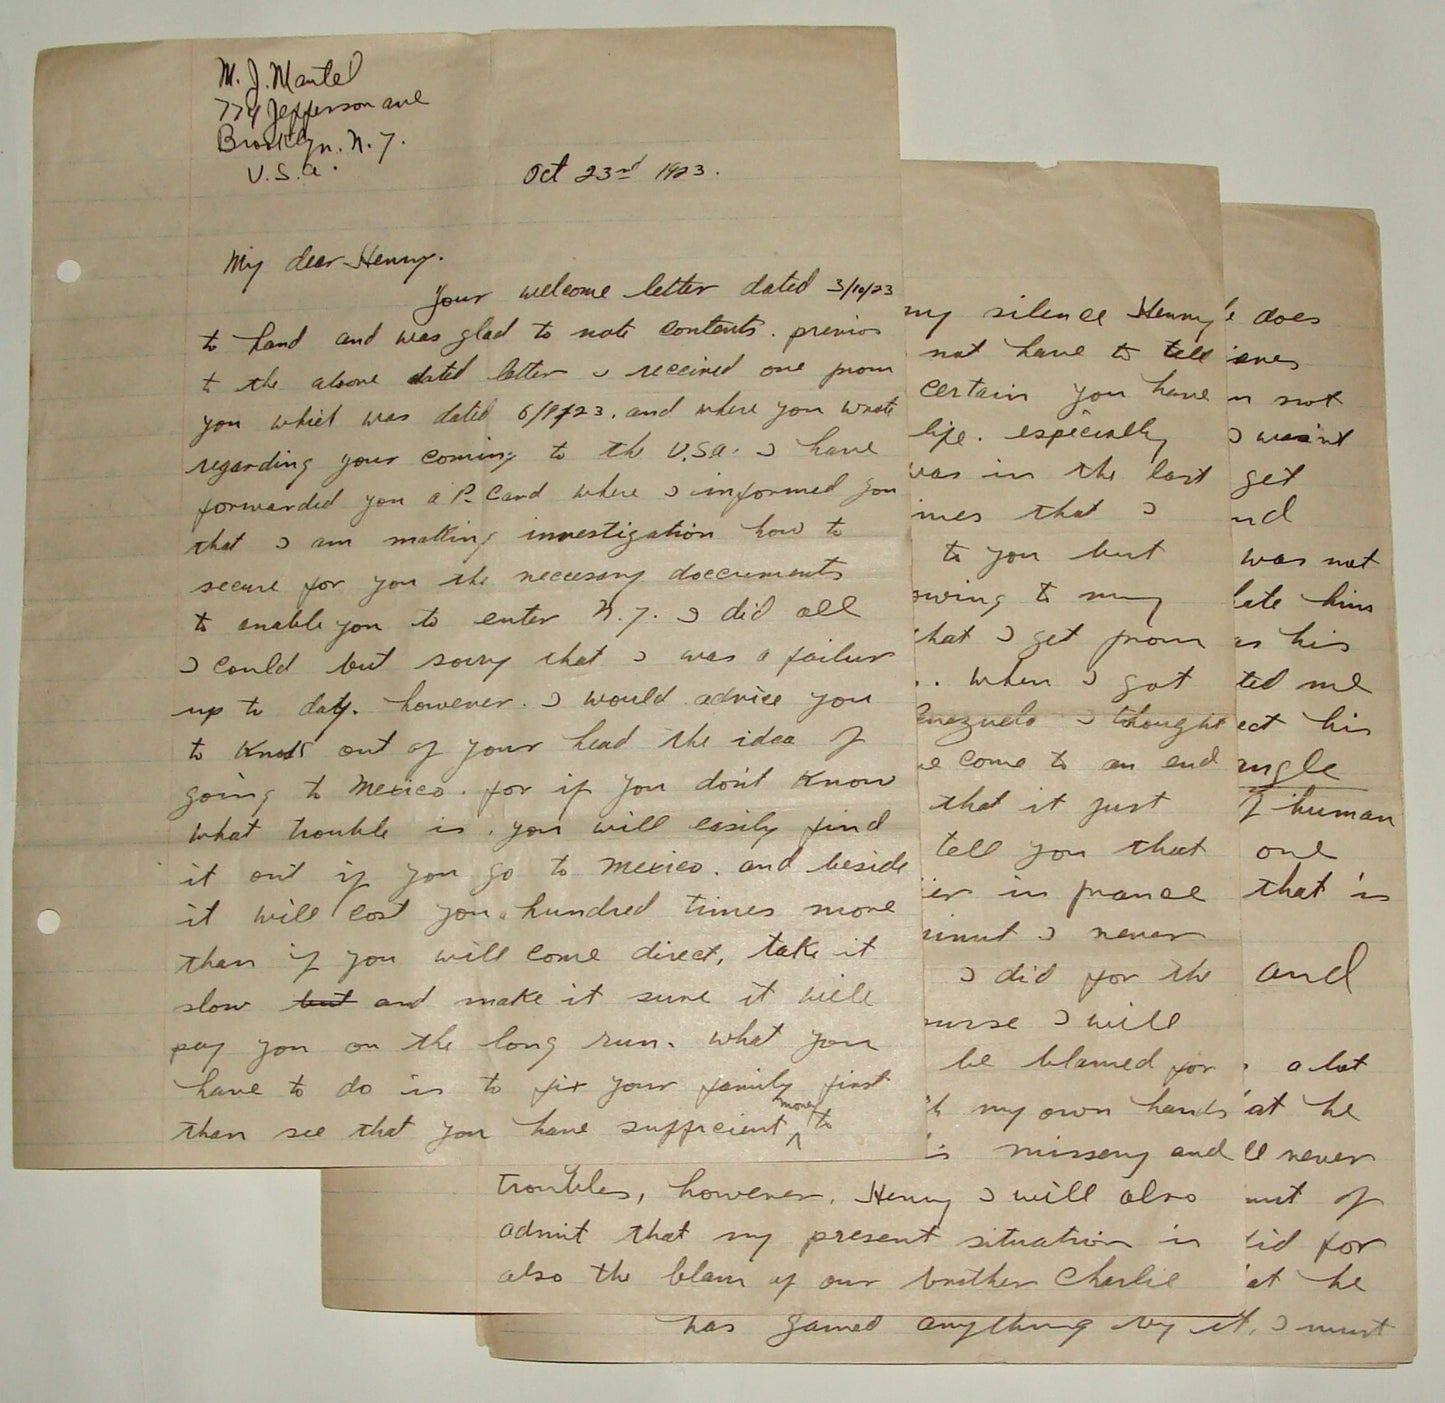 M. J. Mantel
774 Jefferson ave
Brooklyn. N. Y.
U. S. a.
Oct 23rd 1923.
My dear Henny.
Your welcome letter dated 3/10/23
to hand and was glad to note contents. previos
t the above dated letter I received one from
you which was dated 6/9/23. and where you wrote
regarding your coming to the U.S.a. I have
forwarded you a P. Card where I informed you
that I am making investigation how to
secure for you the neccesary doccuments
to enable you to enter N. Y. I did all
I could but sorry that I was a failur
up to daty. however. I would advice you
to knock out of your head the idea of
going to Mexico. for if you don't know
what trouble is. you will easily find
it out if you go to Mexico. and beside
it will cost you hundred times more
than if you will come direct, take it
slow but and make it sure it will
pay you on the long run. what you
have to do is to fix your family first
than see that you have sufficient money to
my silence Henny
not have to tell
certain you have
life. especially
was in the last
imes that I
to you but
owing to my
that I get from
. . when I got
enezuelo I thought
e come to an end
that it just
tell you that
ier in france
inut I never
I did for the
ourse I will
be blamed for
h my own hands
is missery and
troubles, however. Henny I will also
admit that my present situation is
also the blam of our brother Charlie
e does
ieves
n not
I wasn't
get
nd
was not
late him
as his
ted me
ect his
angle
of human
one
that is
and
a lot
at he
ll never
out of
did for
at he
has gained anything by it, I must